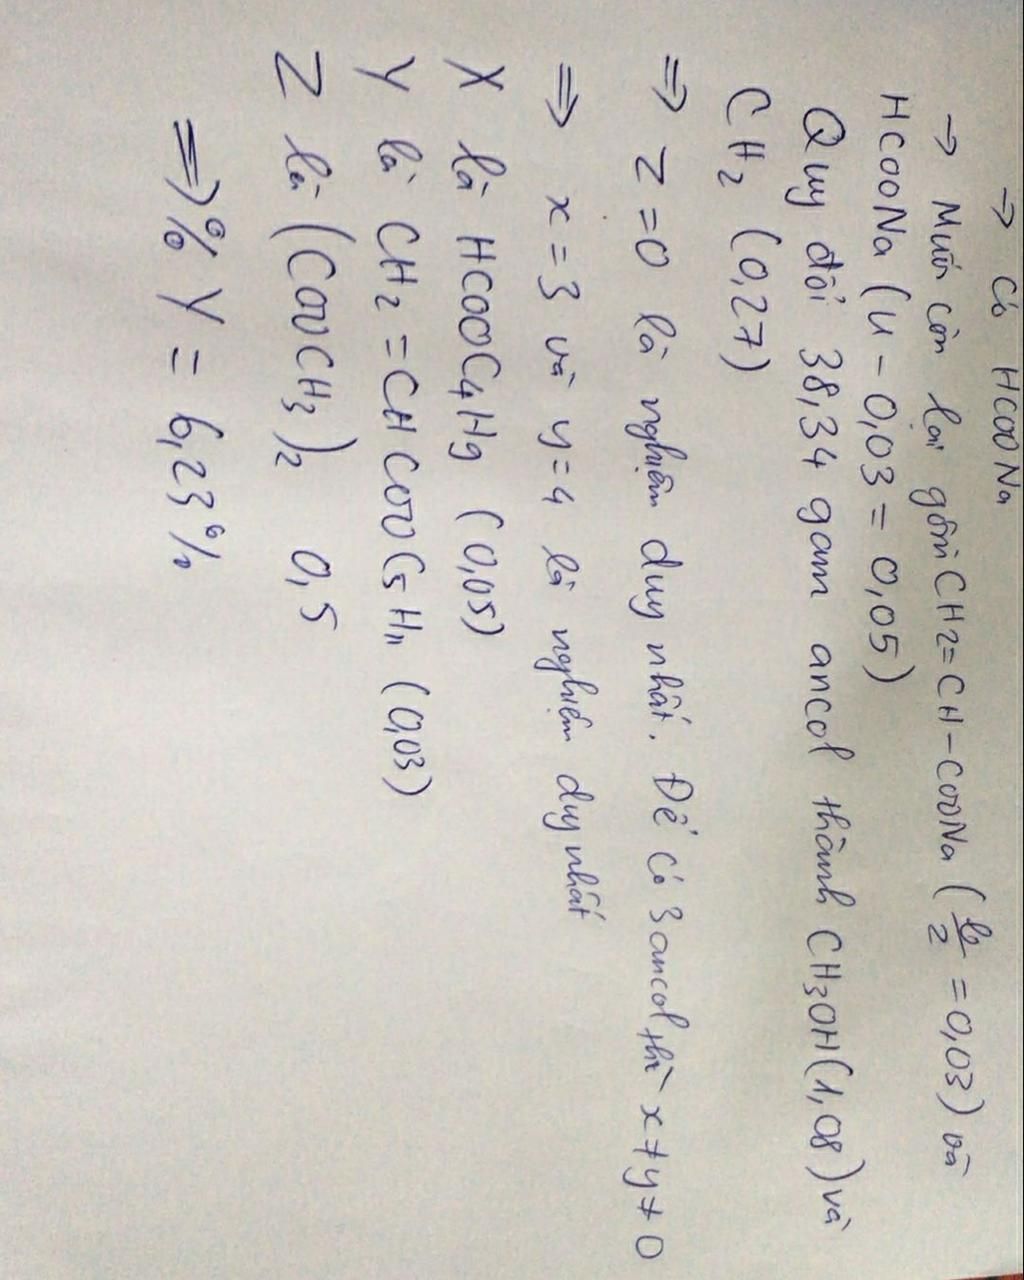 → Có HCOONa
→ Muối còn lại gồm CH2=CH-COONa (b/2 = 0,03) và
HCOONa (u - 0,03 = 0,05)
Quy đổi 38,34 gam ancol thành CH3OH (1,08) và
CH2 (0,27)
⇒ z = 0 là nghiệm duy nhất. Để có 3 ancol thì x ≠ y ≠ 0
⇒ x = 3 và y = 4 là nghiệm duy nhất
X là HCOOC4H9 (0,05)
Y là CH2 = CHCOOC5H11 (0,03)
Z là (COOCH3)2 0,5
⇒ % Y = 6,23%